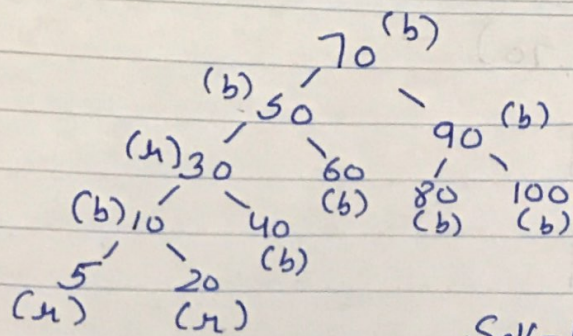 70 (b)
(b) 50
90 (b)
(r) 30
60 (b)
80 (b)
100 (b)
(b) 10
40 (b)
5 (r)
20 (r)